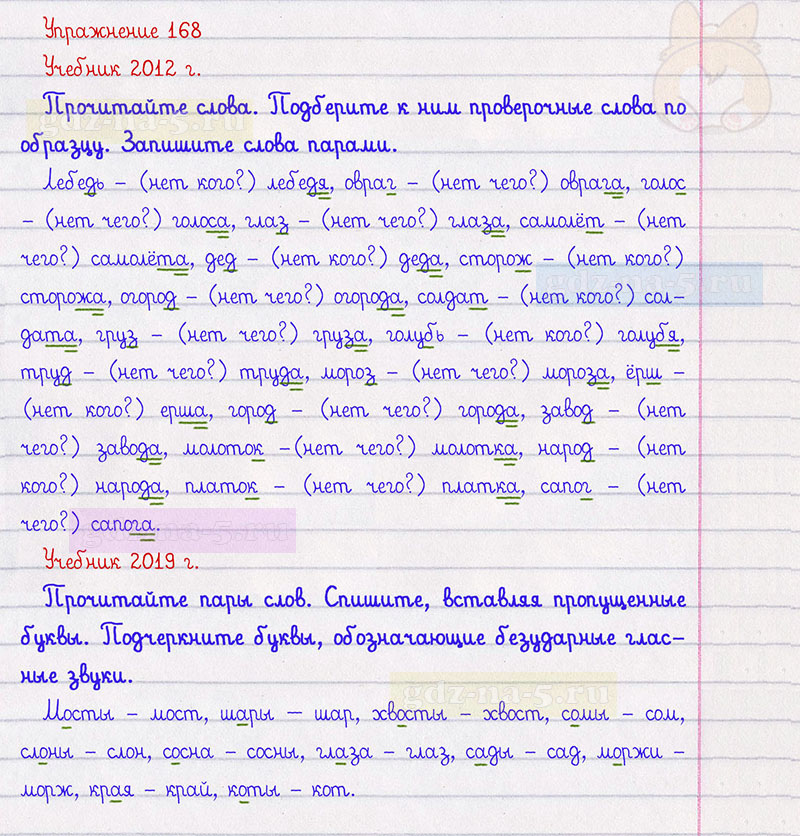 Упражнение 168
Учебник 2012 г.
Прочитайте слова. Подберите к ним проверочные слова по
образцу. Запишите слова парами.
gdz-na-5.ru
Лебедь – (нет кого?) лебедя, овраг – (нет чего?) оврага, голос
– (нет чего?) голоса, глаз – (нет чего?) глаза, самолёт – (нет
чего?) самолёта, дед – (нет кого?) деда, сторож – (нет кого?)
gdz-na-5.ru
сторожа, огород – (нет чего?) огорода, солдат – (нет кого?) сол-
дата, груз – (нет чего?) груза, голубь – (нет кого?) голубя,
труд – (нет чего?) труда, мороз – (нет чего?) мороза, ёрш –
(нет кого?) ерша, город – (нет чего?) города, завод – (нет
чего?) завода, молоток –(нет чего?) молотка, народ – (нет
кого?) народа, платок – (нет чего?) платка, сапог – (нет
чего?) сапога.
gdz-na-5.ru
Учебник 2019 г.
Прочитайте пары слов. Спишите, вставляя пропущенные
буквы. Подчеркните буквы, обозначающие безударные глас-
ные звуки.
gdz-na-5.ru
Мосты – мост, шары — шар, хвосты – хвост, сомы – сом,
слоны – слон, сосна – сосны, глаза – глаз, сады – сад, моржи –
морж, края – край, коты – кот.